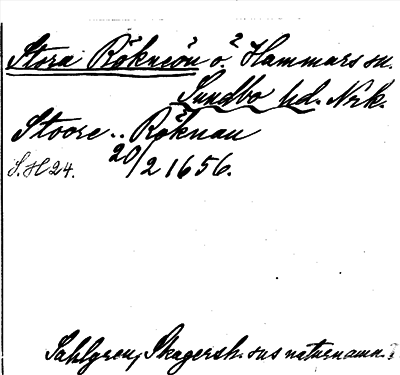 Stora Rökneön ö. Hammars sn.
Sundbo hd. Nrk.
Stoore .. Röknau
S. H 24. 20/2 1656.
Sahlgren, Skagersh. sns naturnamn.